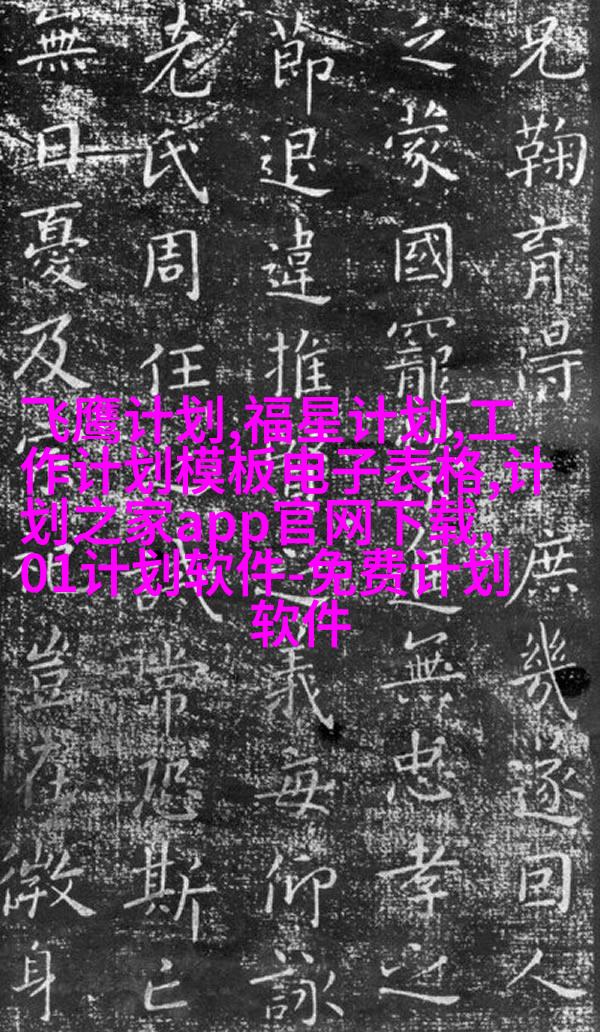 兄鞠育得庶幾遂因人
之蒙國寵無忠孝之
節退違推義每仰詠
老氏周任常恐斯亡
無日憂及豈在微身
飞鹰计划,福星计划,工
作计划模板电子表格,计
划之家app官网下载,
01计划软件-免费计划
软件